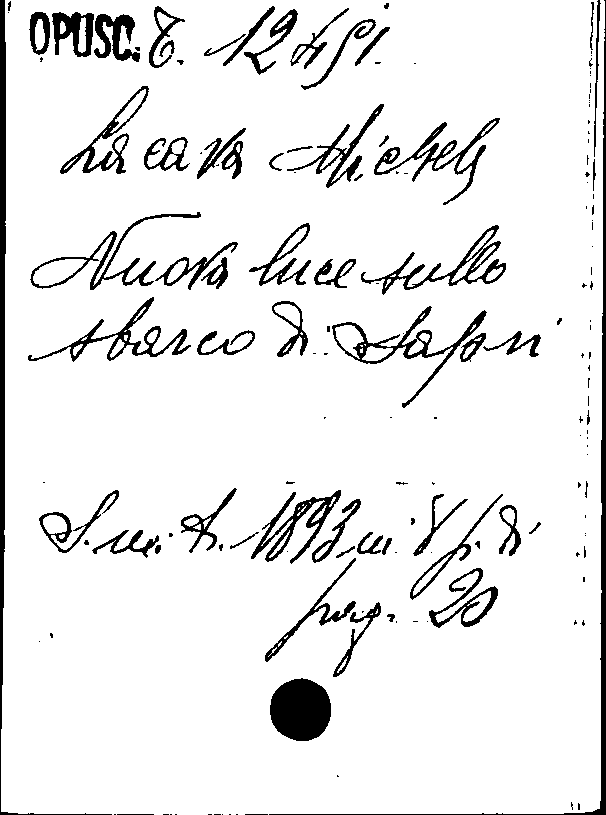 OPUSC. E. 12451
Lacava Michele
Nuova luce sullo
sbarco di Sapri
S. n. t. 1893 in 8 p. di
pag. 20